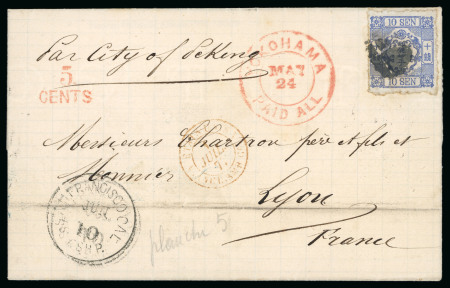 Par City of Peking
5
CENTS
YOKOHAMA
MAY
24
PAID ALL
10 SEN
十錢
10 SEN
Messieurs Chartron père et fils et
Monnier
Lyon
France
SAN FRANCISCO CAL
JUN
10
planche 5